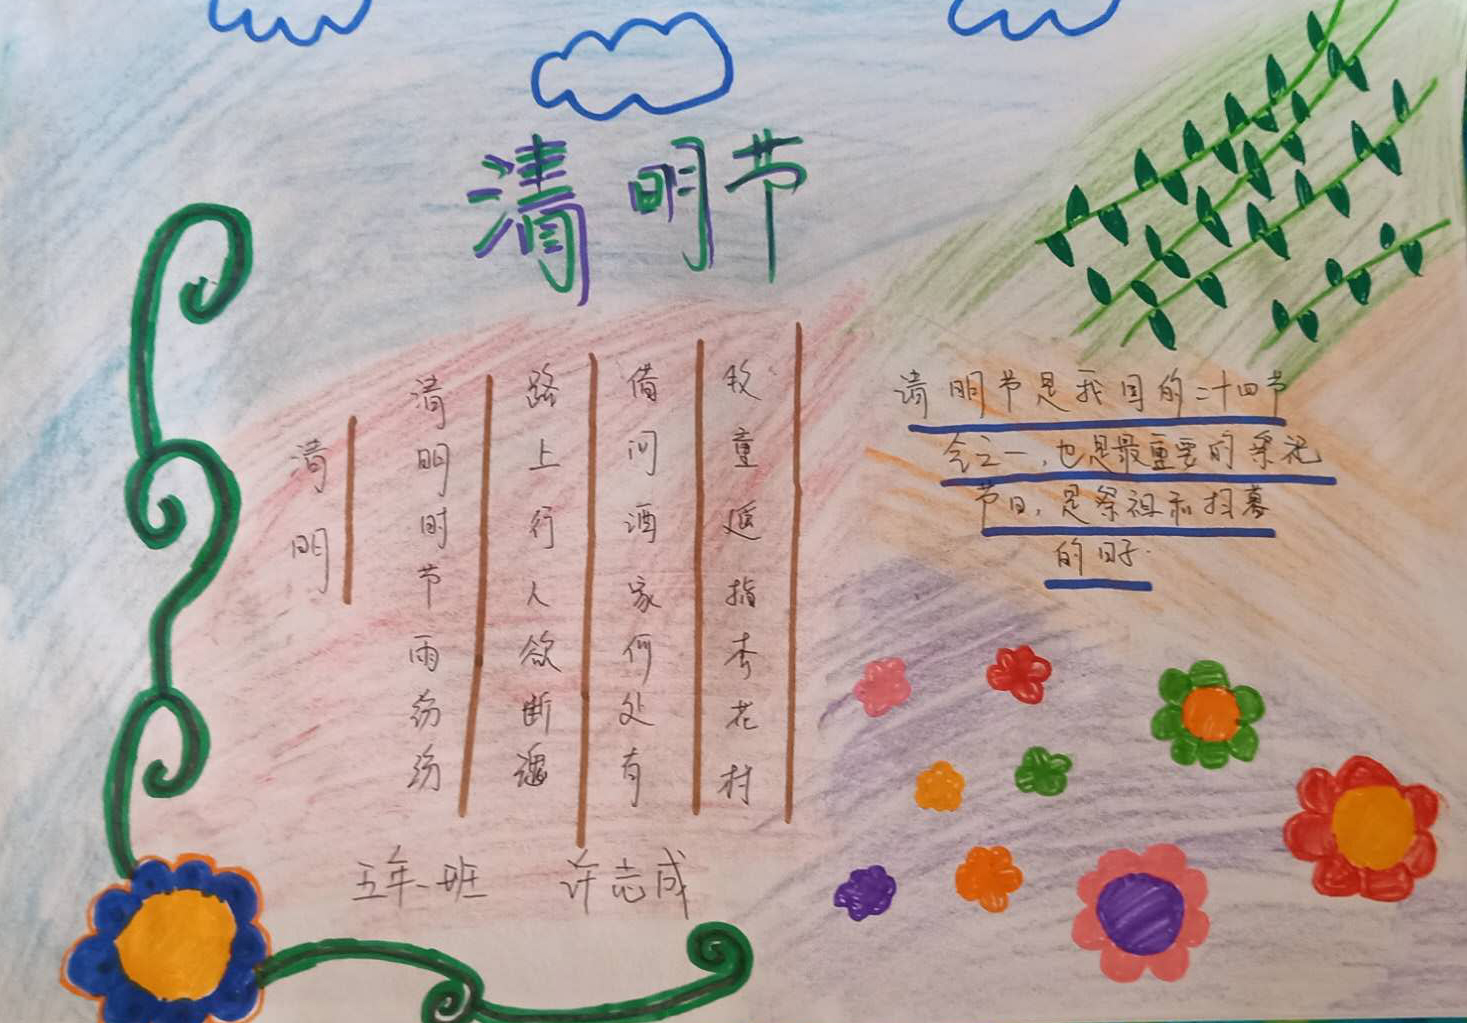 清明节
清明
清明时节雨纷纷
路上行人欲断魂
借问酒家何处有
牧童遥指杏花村
清明节是我国的二十四节
气之一,也是最重要的祭祀
节日,是祭祖和扫墓
的日子.
五年一班 许志成